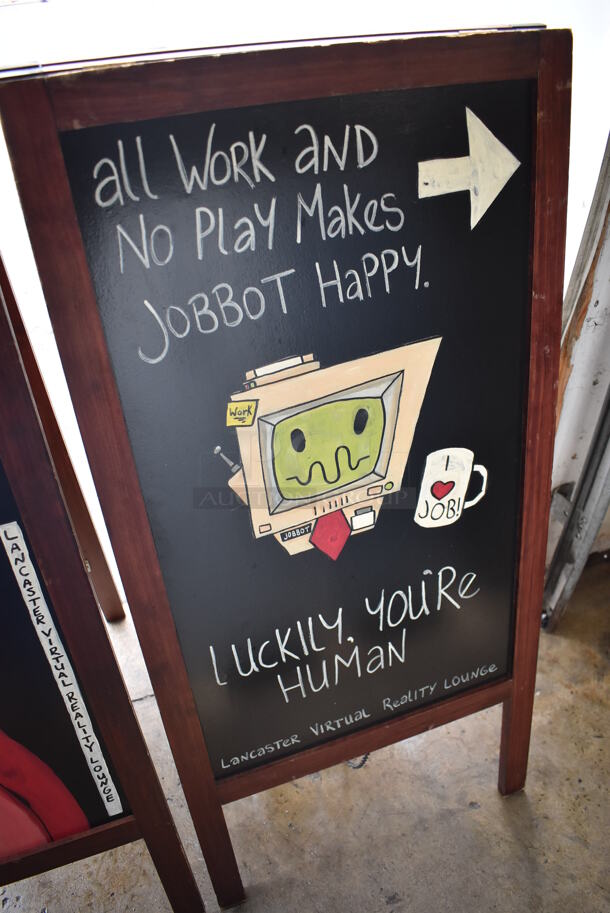 all WORK aND
NO Play Makes
JOBBOT HaPPY.
Work
JOBBOT
I
JOB!
LUCKILY, YOU'Re
HUMAN
LANCASTER VIRTUAL ReALITY LOUNGe
LANCASTER VIRTUAL REALITY LOUNGE